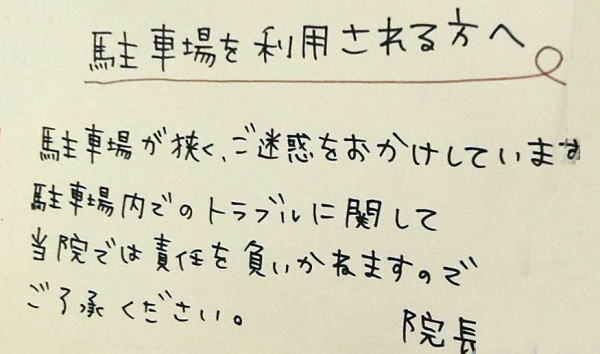 駐車場を利用される方へ
駐車場が狭く、ご迷惑をおかけしています
駐車場内でのトラブルに関して
当院では責任を負いかねますので
ご了承ください。
院長